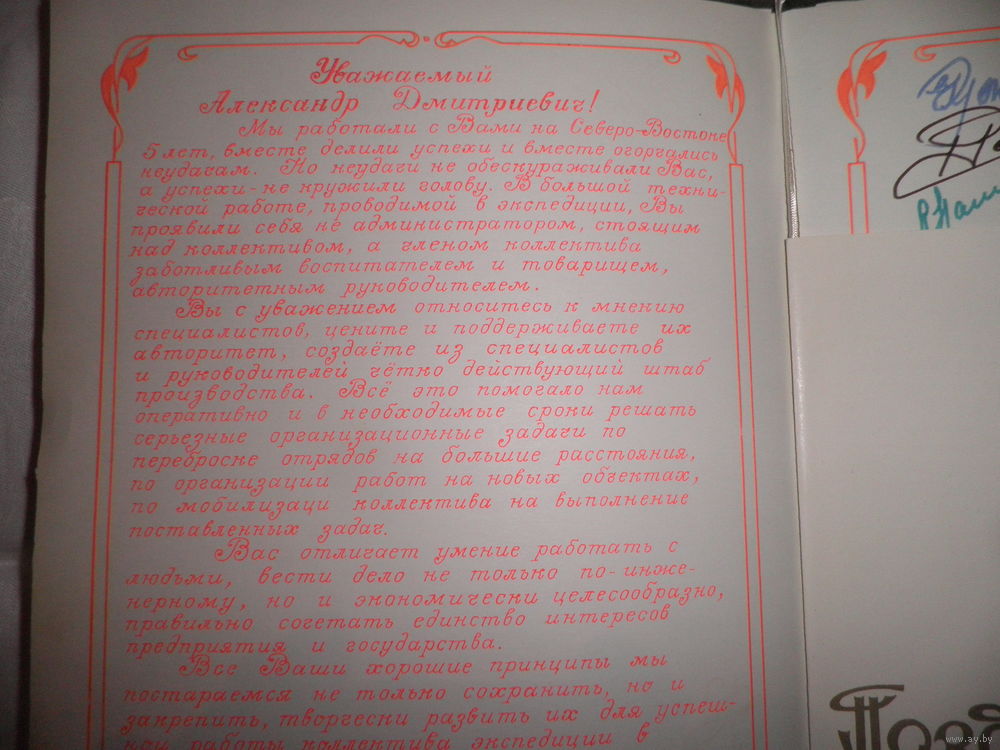 Уважаемый
Александр Дмитриевич!
Мы работали с Вами на Северо-Востоке
5 лет, вместе делили успехи и вместе огорчались
неудачам. Но неудачи не обескураживали Вас,
а успехи - не кружили голову. В большой техни-
ческой работе, проводимой в экспедиции, Вы
проявили себя не администратором, стоящим
над коллективом, а членом коллектива
заботливым воспитателем и товарищем,
авторитетным руководителем.
Вы с уважением относитесь к мнению
специалистов, цените и поддерживаете их
авторитет, создаёте из специалистов
и руководителей чётко действующий штаб
производства. Всё это помогало нам
оперативно и в необходимые сроки решать
серьезные организационные задачи по
переброске отрядов на большие расстояния,
по организации работ на новых объектах,
по мобилизаци коллектива на выполнение
поставленных задач.
Вас отличает умение работать с
людьми, вести дело не только по-инже-
нерному, но и экономически целесообразно,
правильно сочетать единство интересов
предприятия и государства.
Все Ваши хорошие принципы мы
постараемся не только сохранить, но и
закрепить, творчески развить их для успеш-
ной работы коллектива экспедиции в
www.ay.by